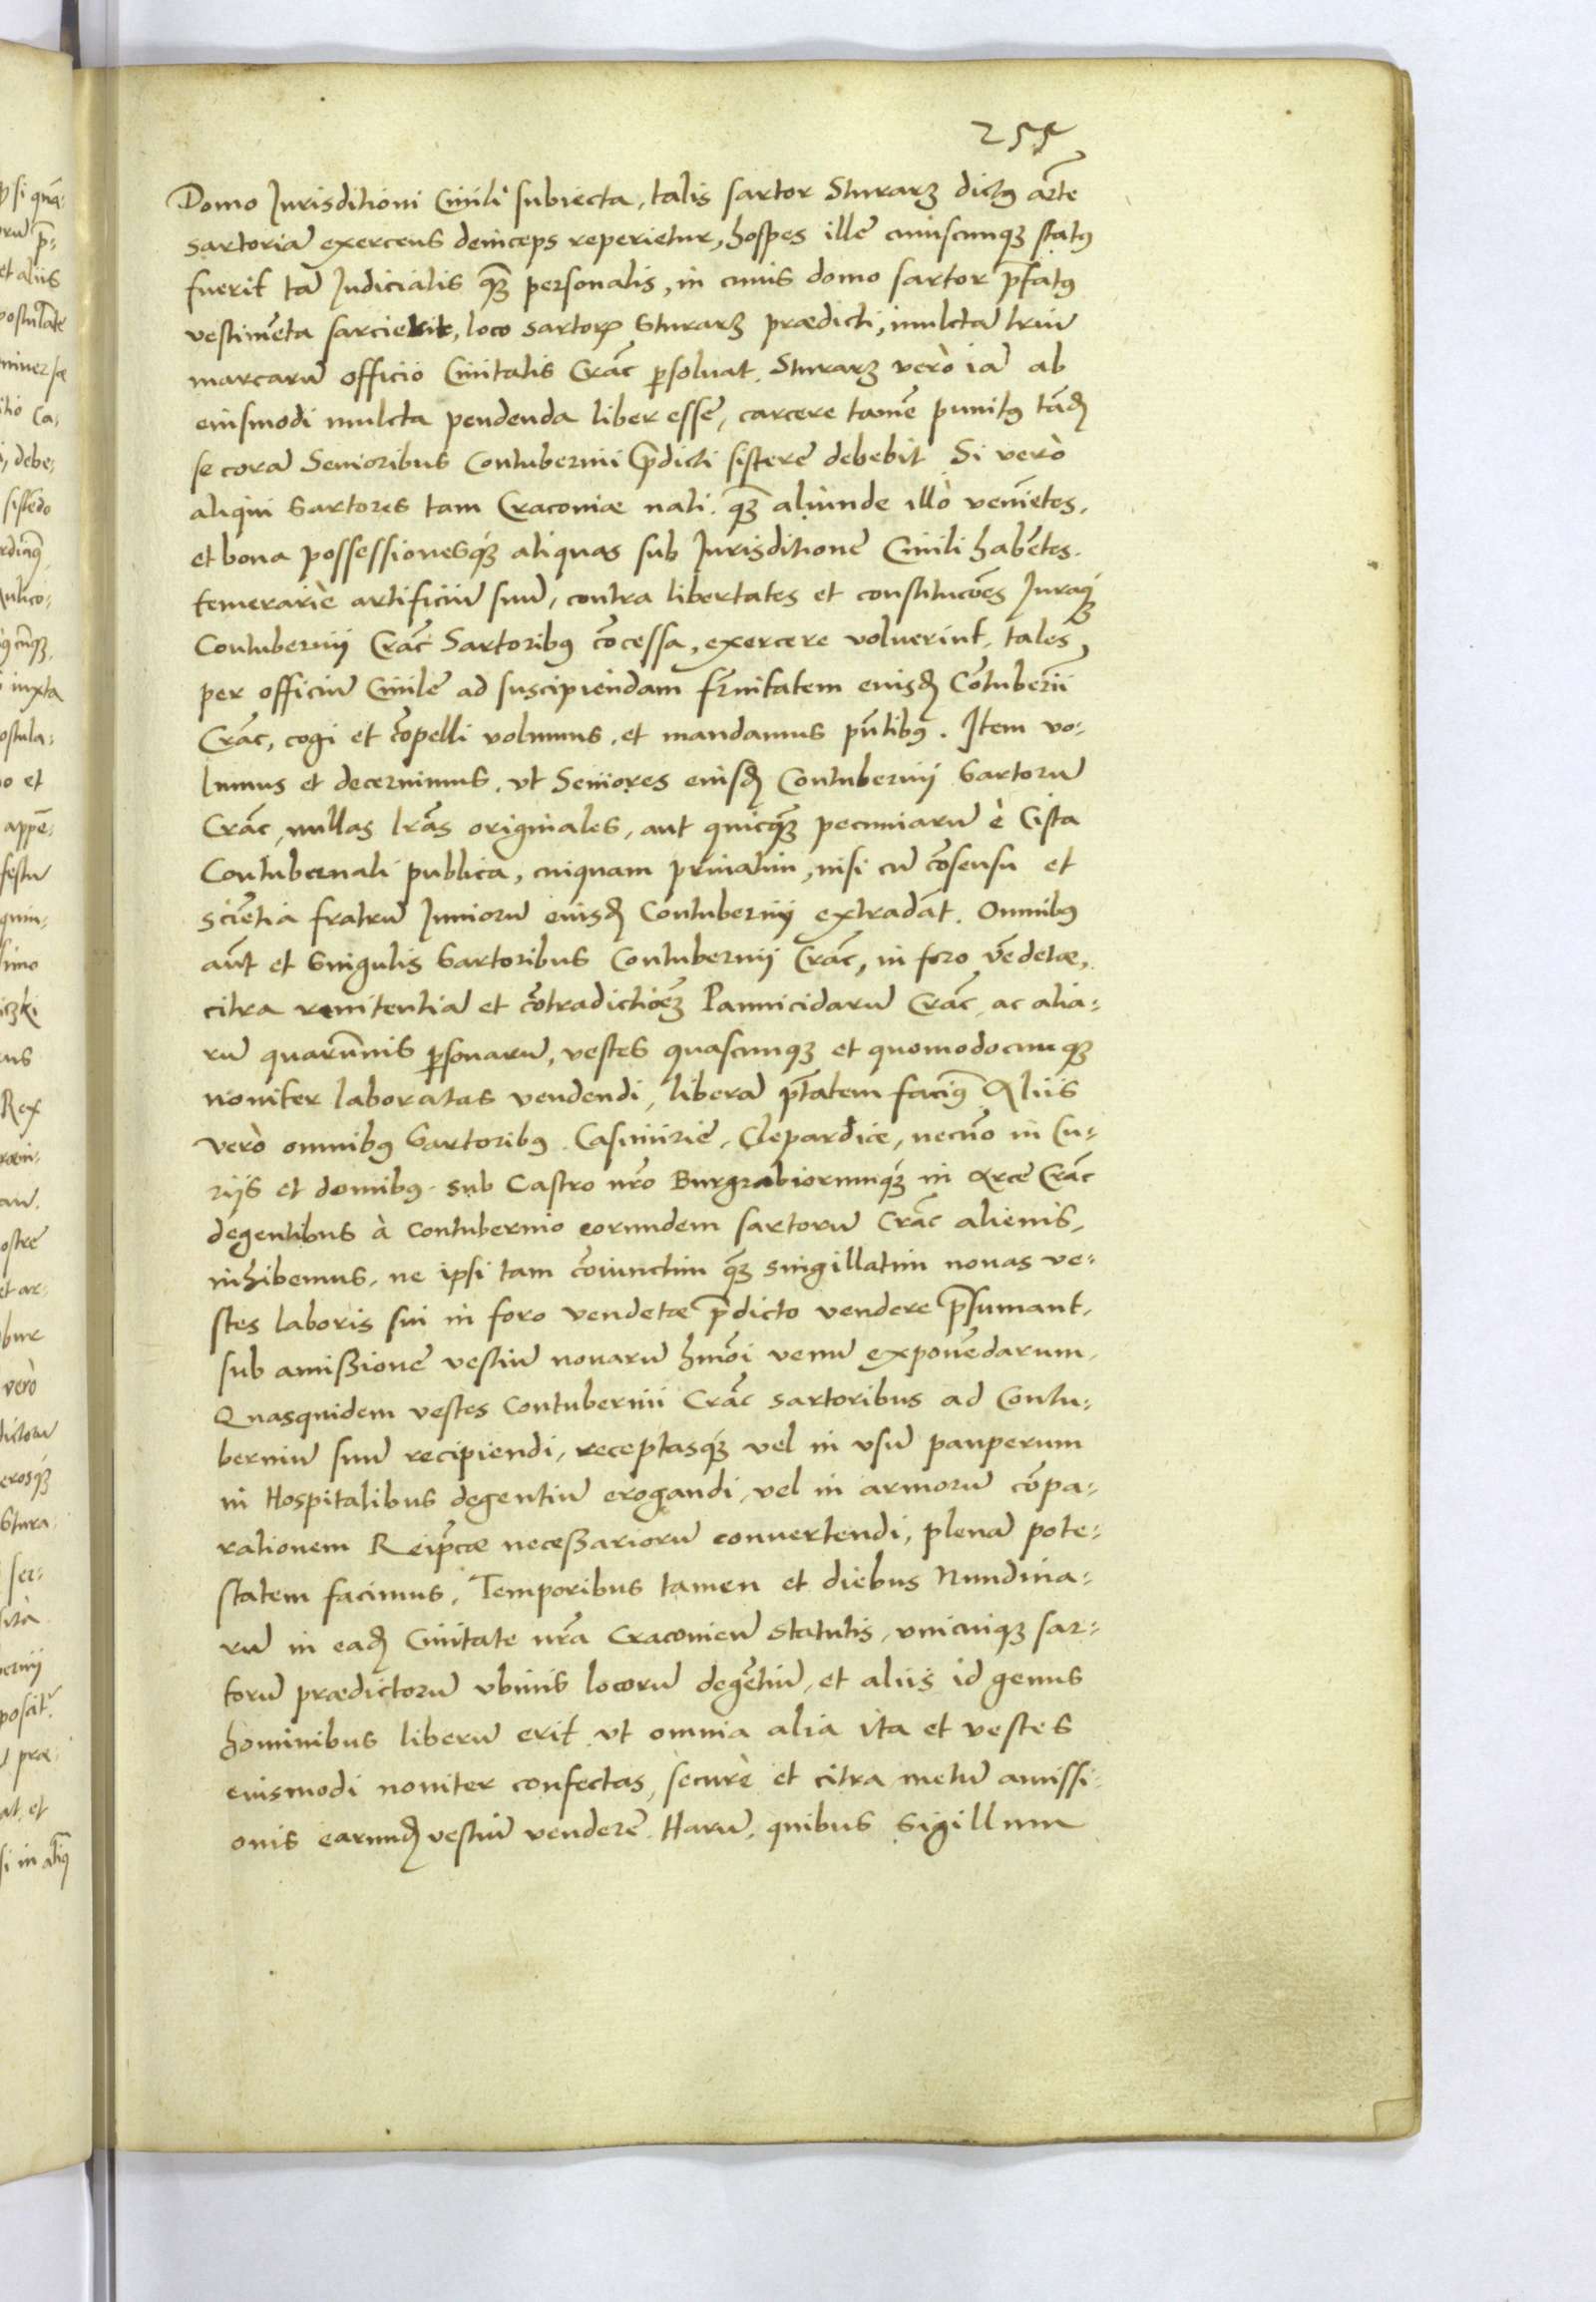 255
Domo Jurisditioni Ciuili subiecta, talis sartor Sturarz dictus arte
sartoria exercens deinceps reperietur, hospes ille cuiuscunqз status
fuerit ta Judicialis qz personalis, in cuius domo sartor pfatus
vestimēta sarcierit, loco sartoꝝ Sturarz prædicti, mulctā triū
marcarū officio Ciuitatis Crāc psoluat. Sturarz verò iā ab
eiusmodi mulcta pendenda liber esse, carcere tamē punitus tādē
se corā Senioribus Contubernii pdicti sistere debebit Si verò
aliqui Sartores tam Cracoviæ nati. qz aliunde illò veniētes,
et bona possessionesqз aliquas sub Jurisditione Ciuili habētes.
temerariè artificiū suū, contra libertates et constitucōes Juraqз
Contubernij Crāc Sartoribus cōcessa, exercere voluerint, tales,
per officiū Ciuile ad suscipiendam frnitatem eiusd Cōtubernii
Crāc, cogi et cōpelli volumus, et mandamus pntibus. Item vo-
lumus et decernimus, vt Seniores eiusd Contubernij Sartorū
Crāc, nullas lrās originales, aut quicqz pecuniarū è Cista
Contubernali publica, cuiquam priuatim, nisi cū cōsensu et
sciētia fratrū Juniorū eiusd Contubernij extradāt. Omnibus
aūt et Singulis Sartoribus Contubernij Crāc, in foro vēdetæ,
citra renitentiā et cōtradictiōez Pannicidarū Crāc ac alia-
rū quarūuis psonarū, vestes quascunqз et quomodocunqз
nouiter laboratas vendendi, liberā ptatem facimus Aliis
verò omnibus Sartoribus Casimirie, Clepardiæ, necnō in Cu-
rijs et domibus sub Castro nrō Burgrabiorumqз in Arce Crāc
degentibus à contubernio eorundem sartorū Crāc alienis,
inhibemus, ne ipsi tam cōiunctim qz singillatim nouas ve-
stes laboris sui in foro vendetæ pdicto vendere psumant,
sub amißione vestiū nouarū hmōi venū exponēdarum,
Quasquidem vestes Contubernii Crāc sartoribus ad Contu-
berniū suū recipiendi, receptasqз vel in vsū pauperum
in Hospitalibus degentiū erogandi, vel in armorū cōpa-
rationem Reipcæ neceßariorū conuertendi, plenā pote-
statem facimus, Temporibus tamen et diebus Nundina-
rū in ead Ciuitate nrā Cracouien Statutis, vnicuiqз sar-
torū prædictorū vbiuis locorū degētiū, et aliis id genus
hominibus liberū erit vt omnia alia ita et vestes
eiusmodi nouiter confectas, securè et citra metū amissi-
onis earund vestiū vendere. Harū, quibus Sigillum